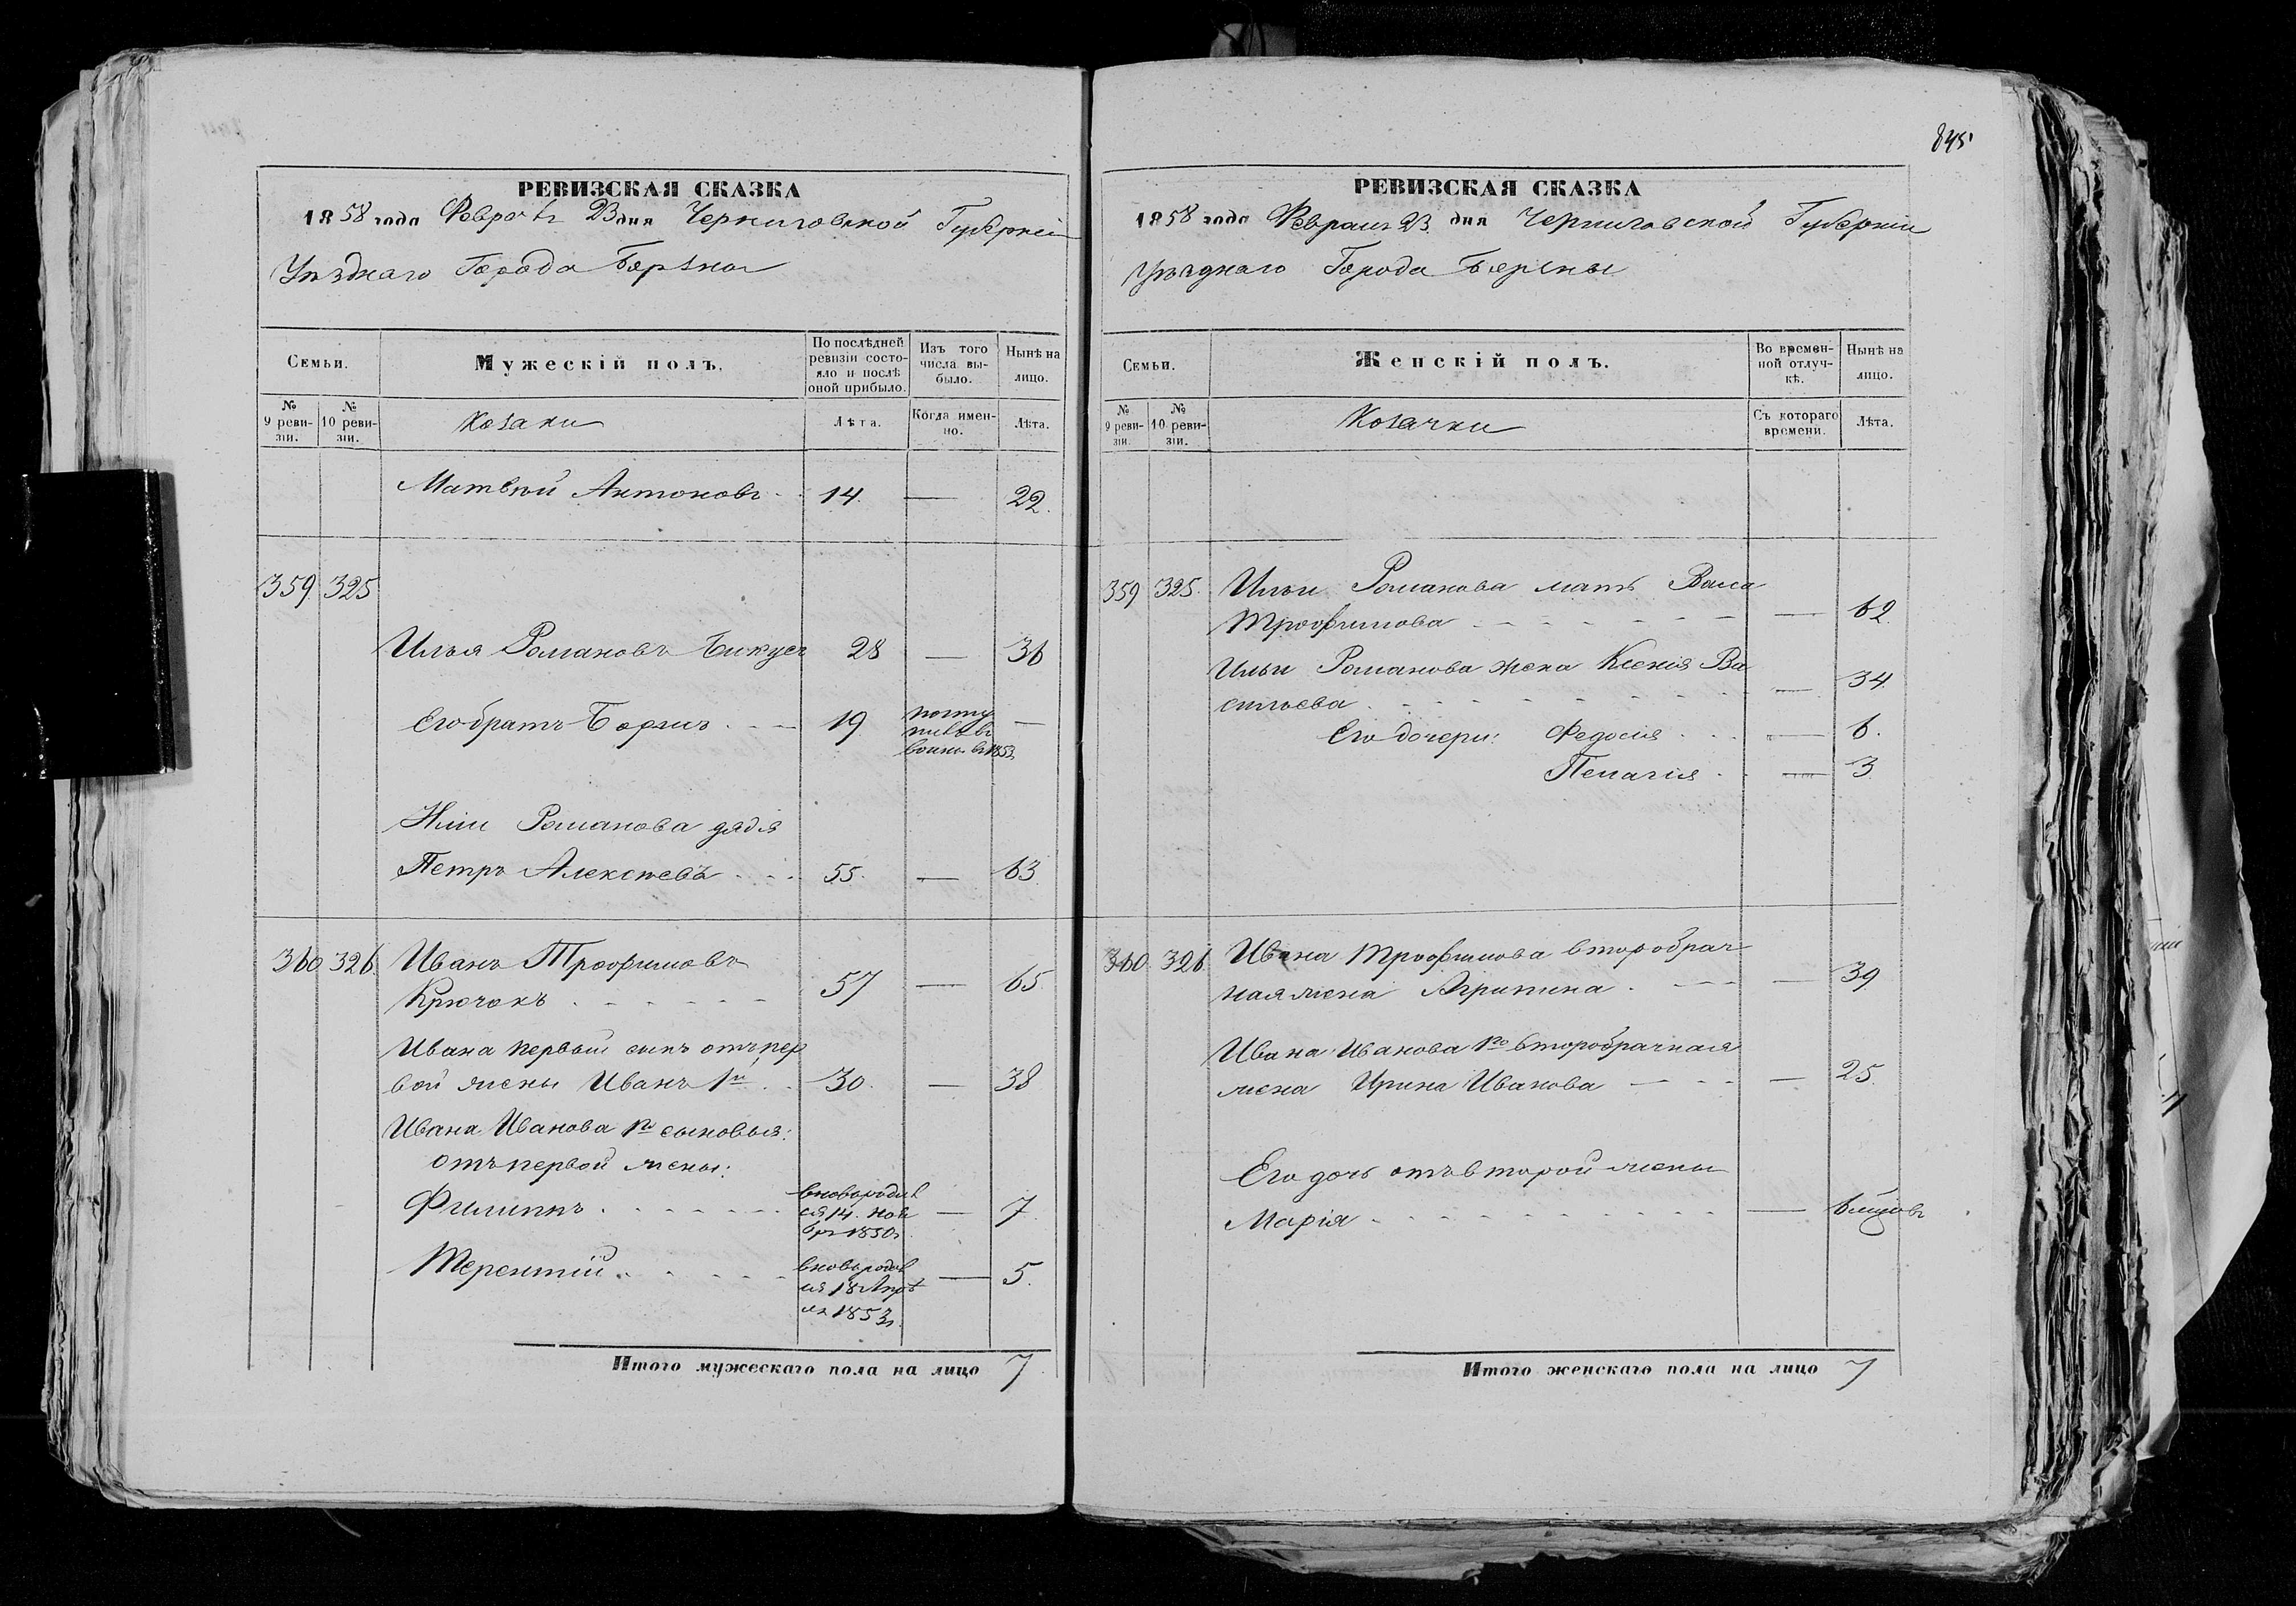 РЕВИЗСКАЯ СКАЗКА
1858 года Феврал 23 дня Черниговской Губерніи
Уѣзднаго Города Борзны
Семьи.
Мужескій полъ.
По послѣдней ревизіи состояло и послѣ оной прибыло.
Изъ того числа выбыло.
Нынѣ на лицо.
№ 9 ревизіи.
№ 10 ревизіи.
Козаки
Лѣта.
Когда именно.
Лѣта.
Матвѣй Антоновъ 14. — 22.
359. 325
Илья Романовъ 28 — 36
Его братъ Борисъ 19 —
1853
Ильи Романова дядя
Петръ Алексѣевъ 55. — 63.
360 326 Иванъ Трофимовъ
Крючокъ 57 — 65.
Ивана первый сынъ отъ пер
вой жены Иванъ 1й 30. — 38
Ивана Иванова 1го сыновья:
отъ первой жены:
Филиппъ
вновь родил
ся 14. Ноя
бря 1850г.
— 7.
Терентій
вновь родил
ся 18 Апрѣ
ля 1853г.
— 5.
Итого мужескаго пола на лицо 7
845
РЕВИЗСКАЯ СКАЗКА
1858 года Февраля 23 дня Черниговской Губерніи
Уѣзднаго Города Борзны
Семьи.
Женскій полъ.
Во временной отлучкѣ.
Нынѣ на лицо.
№ 9 ревизіи.
№ 10 ревизіи.
Козачки
Съ котораго времени.
Лѣта.
359 325. Ильи Романова мать Васса
Трофимова — 62.
Ильи Романова жена Ксенія Ва
сильева — 34.
Его дочери: Федосія — 6.
Пелагія — 3
360. 326 Ивана Трофимова второбрач
ная жена Агрипина — 39
Ивана Иванова 1го второбрачная
жена Ирина Иванова — 25.
Его дочь отъ второй жены
Марія — 6 мѣсяцовъ
Итого женскаго пола на лицо 7